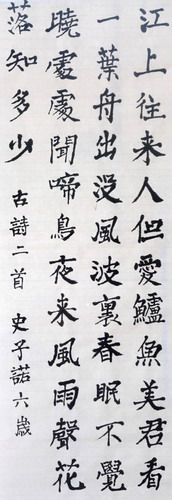 江上往来人但愛鱸魚美君看
一葉舟出没風波裏春眠不覺
曉處處聞啼鳥夜来風雨聲花
落知多少 古詩二首 史子諾六歲